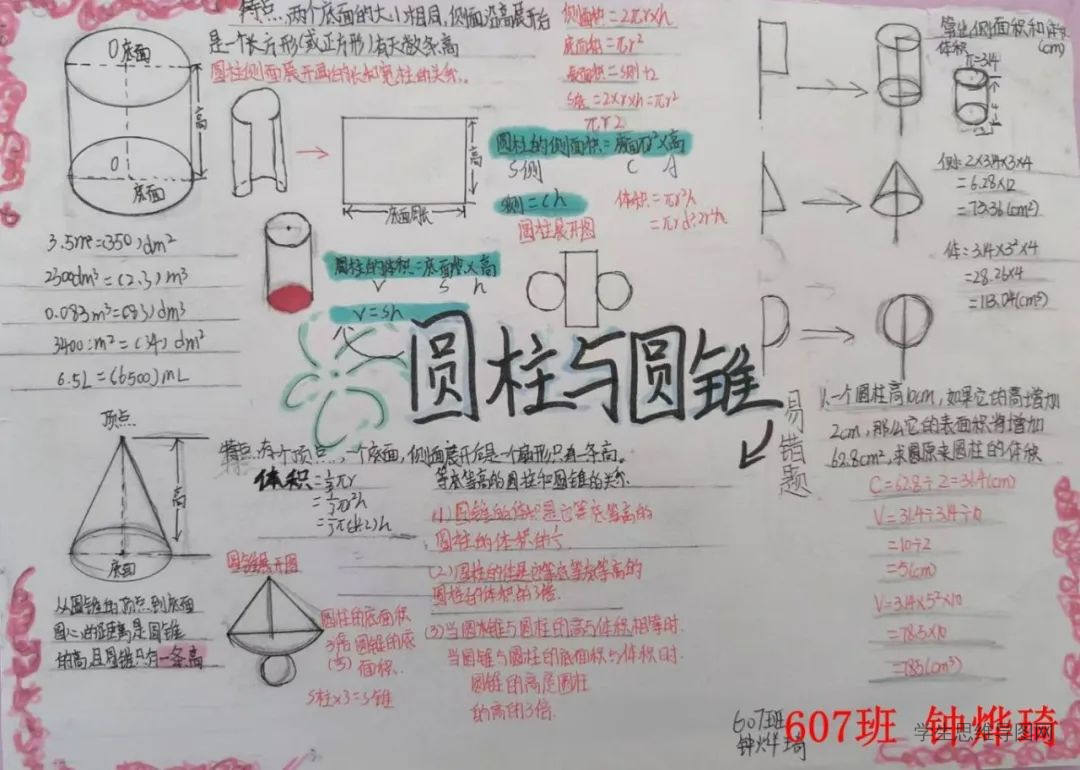 特点:两个底面的大小相同,侧面沿高展开后
是一个长方形(或正方形)有无数条高
圆柱侧面展开
侧面积=2πr×h
底面积=πr²
表面积=S侧+2
S底=2×r×h=πr²
πr2
圆柱的侧面积=底面πr²×高
S侧 C
S侧=Ch
体积=πr²h
圆柱展开图
O 底面
高
O
底面
高
底面周长
3.5m²=(350)dm²
2300dm³=(2.3)m³
0.083m³=(83)dm³
3400cm²=(34)dm²
6.5L=(6500)mL
圆柱的体积=底面积×高
V S h
V=Sh
圆柱与圆锥
算出侧面积和体积
(cm)
体积
π=3.14
侧:2×3.14×3×4
=6.28×12
=75.36(cm²)
体:3.14×3²×4
=28.26×4
=113.04(cm³)
易错题
1、一个圆柱高10cm,如果它的高增加
2cm,那么它的表面积将增加
62.8cm²,求圆原来圆柱的体积
C=62.8÷2=31.4(cm)
V=31.4÷3.14÷10
=10÷2
=5(cm)
V=3.14×5²×10
=78.5×10
=785(cm³)
顶点
高
底面
从圆锥的顶点到底面
圆心的距离是圆锥
的高且圆锥只有一条高
特点:有个顶点,一个底面,侧面展开后是一个扇形只有一条高。
体积=⅓πr
=⅓πr²h
=⅓π(d÷2)h
圆锥展开图
圆柱的底面积
3倍圆锥的底
面积.
S柱×3=S锥
等底等高的圆柱和圆锥的关系
(1)圆锥的体积是它等底等高的
圆柱的体积的⅓.
(2)圆柱的体是它等底等高的
圆柱的体积的3倍.
(3)当圆锥与圆柱的高与体积相等时.
当圆锥与圆柱的底面积与体积时.
圆锥的高是圆柱
的高的3倍.
607班
钟烨琦
607班 钟烨琦
学生思维导图网